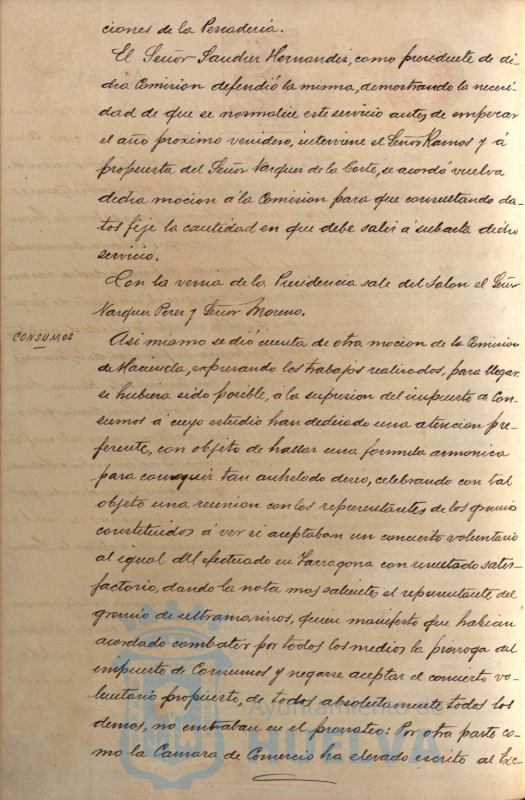 ciones de la Pescaderia.
El Señor Sanchez Hernandez, como presidente de di-
cha Comision defendió la misma, demostrando la necesi-
dad de que se normalice este servicio antes de empezar
el año proximo venidero, interviene el Señor Ramos y á
propuesta del Señor Vazquez de la Corte, se acordó vuelva
dicha mocion á la Comision para que consultando da-
tos fije la cantidad en que debe salir á subasta dicho
servicio.
Con la venia de la Presidencia sale del Salon el Señor
Vazquez Perez y Señor Moreno.
CONSUMOS
Asi mismo se dió cuenta de otra mocion de la Comision
de Hacienda, expresando los trabajos realizados, para llegar,
se hubiera sido posible, á la supresion del impuesto de Con-
sumos á cuyo estudio han dedicado una atencion pre-
ferente, con objeto de hallar una fórmula armonica
para conseguir tan anhelado deseo, celebrando con tal
objeto una reunion con los representantes de los gremios
constituidos á ver si aceptaban un concierto voluntario
al igual del efectuado en Tarragona con resultado satis-
factorio, dando la nota mas saliente, el representante del
gremio de ultramarinos, quien manifestó que habian
acordado combatir por todos los medios la prorroga del
impuesto de Consumos y negarse aceptar el concierto vo-
luntario propuesto, de todos absolutamente todos los
demas, no entraban en el prorrateo: Por otra parte co-
mo la Camara de Comercio ha elevado escrito al Exc-
Ayuntamiento de
HUELVA